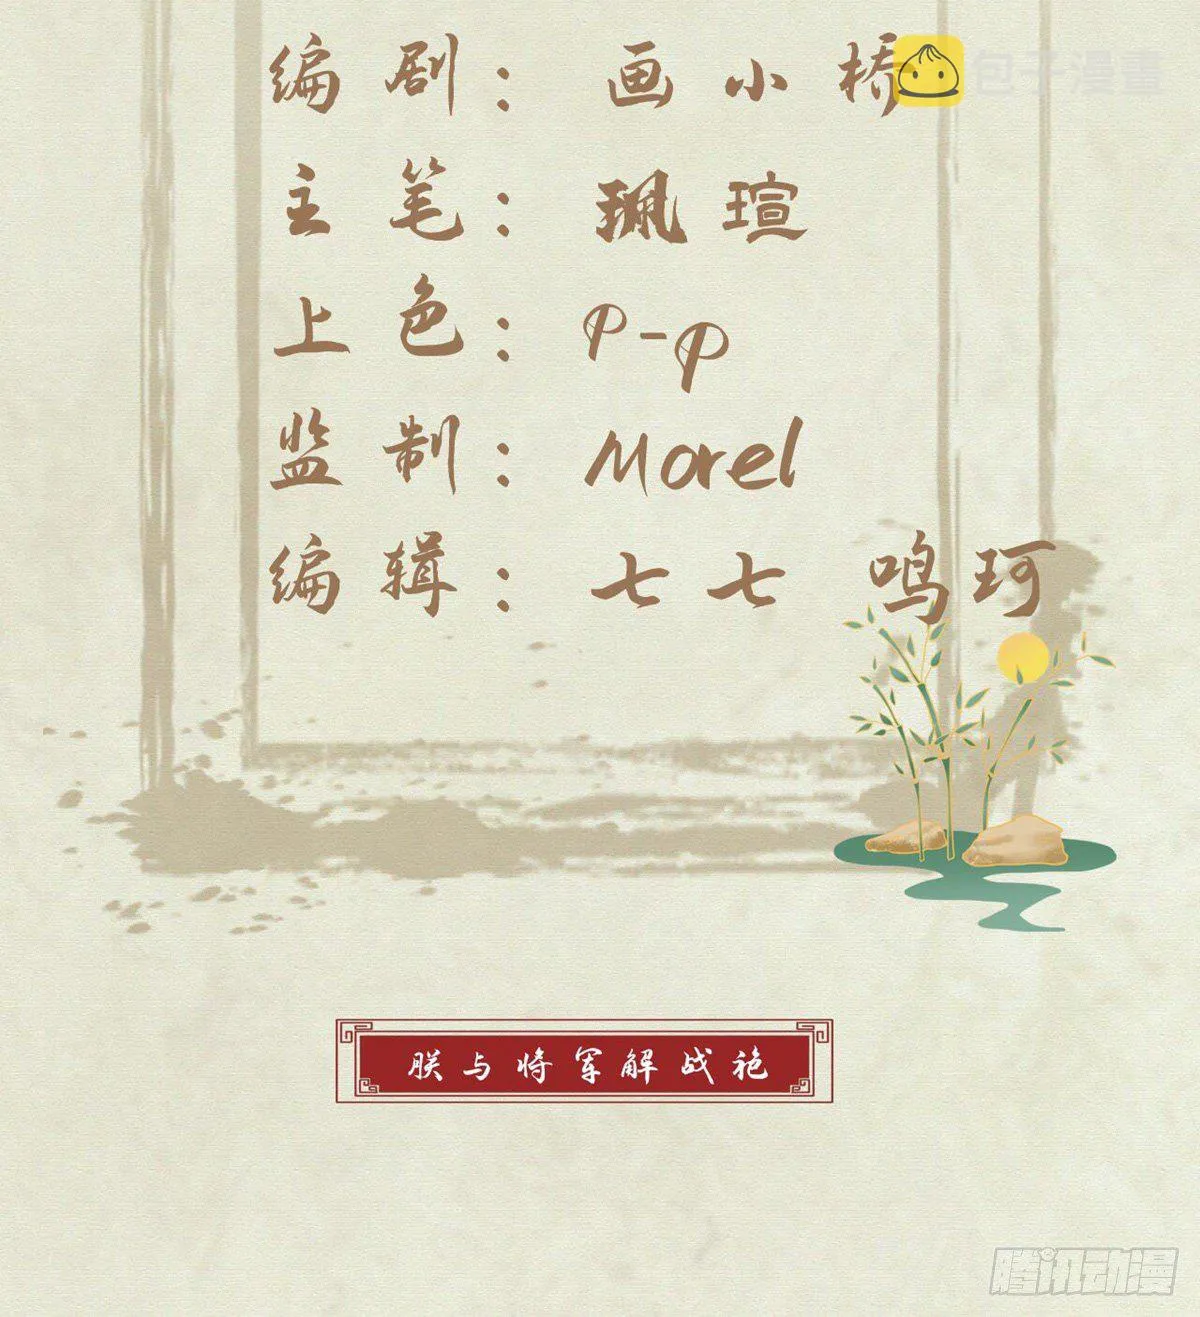 编剧：画小桥
包子漫畫
主笔：珮瑄
上色：P-P
监制：Morel
编辑：七七 鸣珂
朕与将军解战袍
腾讯动漫